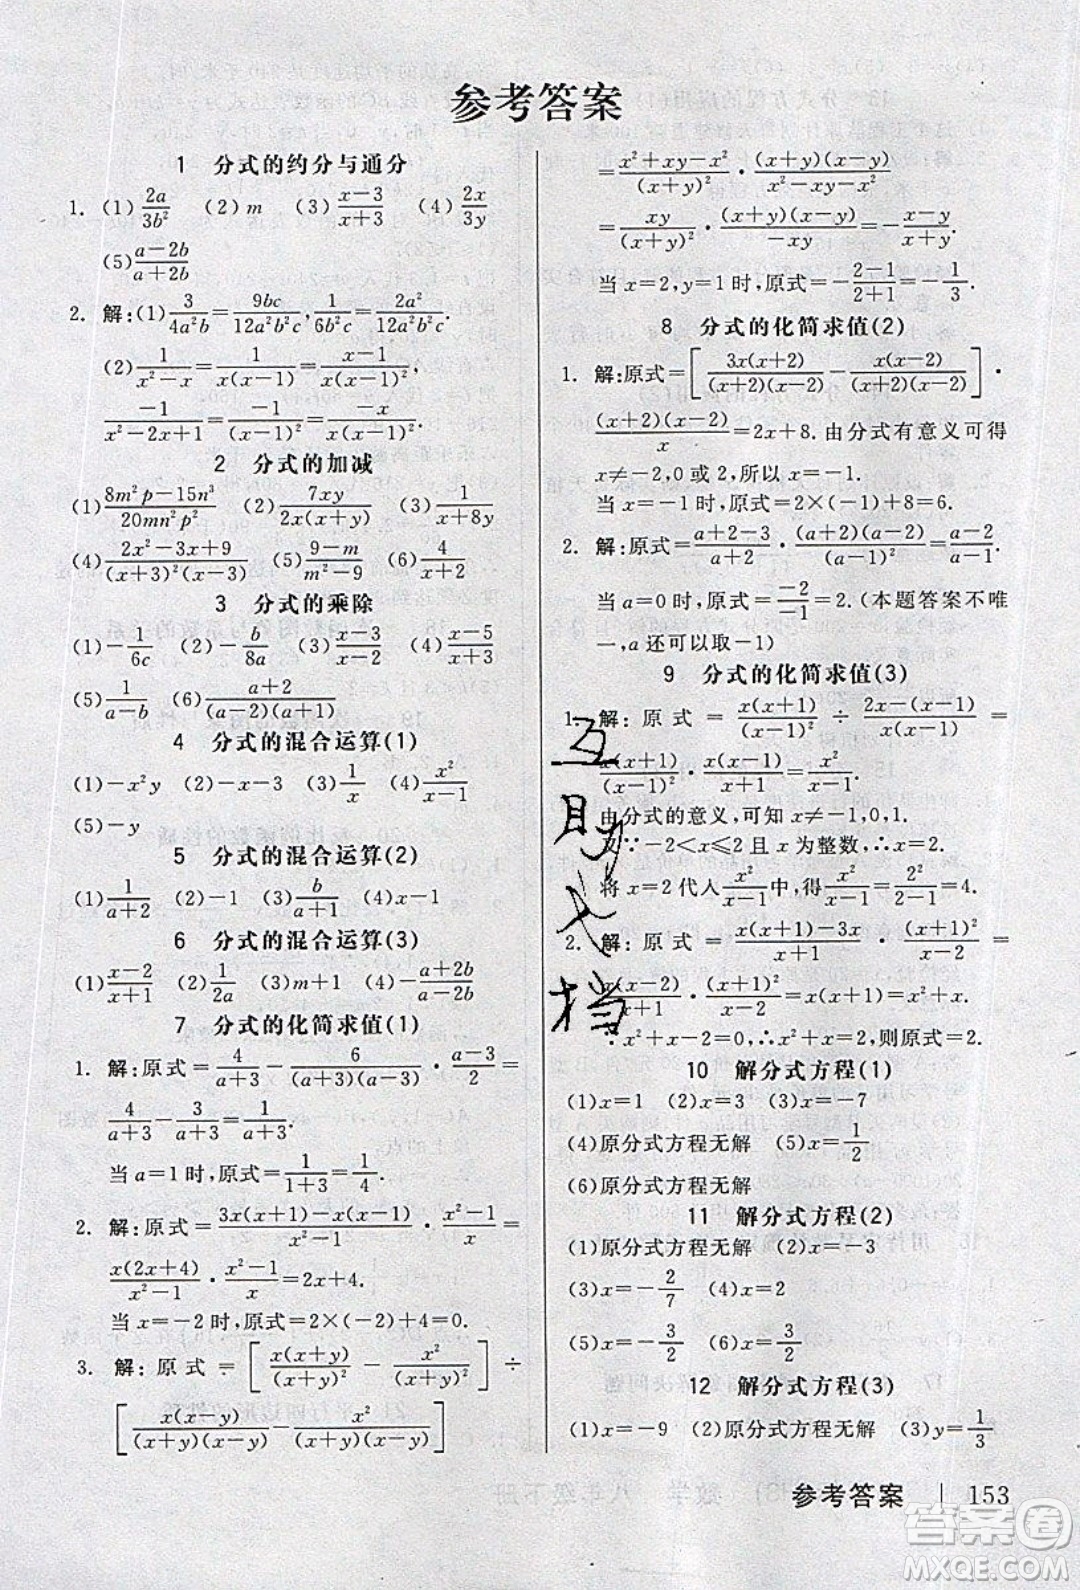 参考答案
1 分式的约分与通分
1. (1)2a/3b² (2)m (3)(x-3)/(x+3) (4)2x/3y
(5)(a-2b)/(a+2b)
2. 解:(1)3/(4a²b)=9bc/(12a²b²c),1/(6b²c)=2a²/(12a²b²c).
(2)1/(x²-x)=1/(x(x-1))=(x-1)/(x(x-1)²),
-1/(x²-2x+1)=-1/(x-1)²=-x/(x(x-1)²).
2 分式的加减
(1)(8m²p-15n³)/(20mn²p²) (2)7xy/(2x(x+y)) (3)1/(x+8y)
(4)(2x²-3x+9)/((x+3)²(x-3)) (5)(9-m)/(m²-9) (6)4/(x+2)
3 分式的乘除
(1)-1/(6c) (2)-b/(8a) (3)(x-3)/(x-2) (4)(x-5)/(x+3)
(5)1/(a-b) (6)(a+2)/((a-2)(a+1))
4 分式的混合运算(1)
(1)-x²y (2)-x-3 (3)1/x (4)x²/(x-1)
(5)-y
5 分式的混合运算(2)
(1)1/(a+2) (2)-1 (3)b/(a+1) (4)x-1
6 分式的混合运算(3)
(1)(x-2)/(x+1) (2)1/(2a) (3)m+1 (4)-(a+2b)/(a-2b)
7 分式的化简求值(1)
1. 解:原式=4/(a+3)-6/((a+3)(a-3))·(a-3)/2=
4/(a+3)-3/(a+3)=1/(a+3).
当a=1时,原式=1/(1+3)=1/4.
2. 解:原式=(3x(x+1)-x(x-1))/(x²-1)·(x²-1)/x=
x(2x+4)/(x²-1)·(x²-1)/x=2x+4.
当x=-2时,原式=2×(-2)+4=0.
3. 解:原式=[x(x+y)/(x+y)²-x²/(x+y)²]÷
[x(x-y)/((x+y)(x-y))-x²/((x+y)(x-y))]=
(x²+xy-x²)/(x+y)²·(x+y)(x-y)/(x²-xy-x²)
=xy/(x+y)²·(x+y)(x-y)/(-xy)=-(x-y)/(x+y).
当x=2,y=1时,原式=-(2-1)/(2+1)=-1/3.
8 分式的化简求值(2)
1. 解:原式=[3x(x+2)/((x+2)(x-2))-x(x-2)/((x+2)(x-2))]·
(x+2)(x-2)/x=2x+8.由分式有意义可得
x≠-2,0或2,所以x=-1.
当x=-1时,原式=2×(-1)+8=6.
2. 解:原式=(a+2-3)/(a+2)·(a+2)(a-2)/(a-1)²=(a-2)/(a-1).
当a=0时,原式=-2/-1=2.(本题答案不唯
一,a还可以取-1)
9 分式的化简求值(3)
1. 解:原式=x(x+1)/(x-1)²÷(2x-(x-1))/(x(x-1))=
x(x+1)/(x-1)²·x(x-1)/(x+1)=x²/(x-1).
由分式的意义,可知x≠-1,0,1.
又∵-2<x≤2且x为整数,∴x=2.
将x=2代入x²/(x-1)中,得x²/(x-1)=2²/(2-1)=4.
2. 解:原式=(x(x+1)-3x)/(x+1)·(x+1)²/(x-2)=
x(x-2)/(x+1)·(x+1)²/(x-2)=x(x+1)=x²+x.
∵x²+x-2=0,∴x²+x=2,则原式=2.
10 解分式方程(1)
(1)x=1 (2)x=3 (3)x=-7
(4)原分式方程无解 (5)x=1/2
(6)原分式方程无解
11 解分式方程(2)
(1)原分式方程无解 (2)x=-3
(3)x=-2/7 (4)x=2
(5)x=3/2 (6)x=3/2
12 解分式方程(3)
(1)x=-9 (2)原分式方程无解 (3)y=1/3
参考答案 153
互助文档
答案圈
MXQE.COM